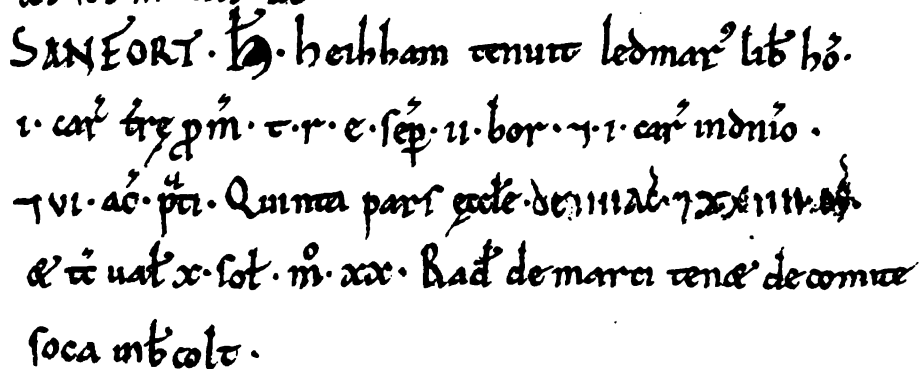 SANFORT · H̄ · heihham tenuit ledmar᷒ lib̄ hō ·
i · car̄ tr̄ę ꝓ m̄ · t · r · e · sēp · ii · bor · ⁊ · i · car̄ in dn̄io ·
⁊ vi · ac̄ · pᵃti · Quinta pars ęccłe · de iiii ac̄ · ⁊ xxiiii ·
æ tc̄ ual̄ x · sol̄ · m̊ · xx · Rad̄ de marci tenæ de comite
soca in b̄ colt ·